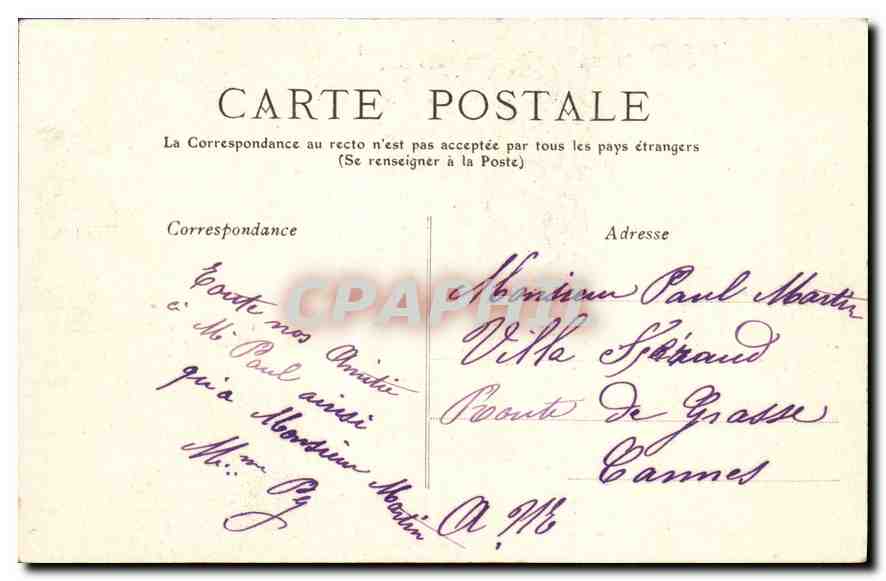 CARTE POSTALE
La Correspondance au recto n'est pas acceptée par tous les pays étrangers
(Se renseigner à la Poste)
Correspondance
Toute nos Amitie
à Mr Paul ainsi
qu'a Monsieur Martin
Mme
Adresse
Monsieur Paul Martin
Villa
Route de Grasse
Cannes
A. M
CPAPHIL